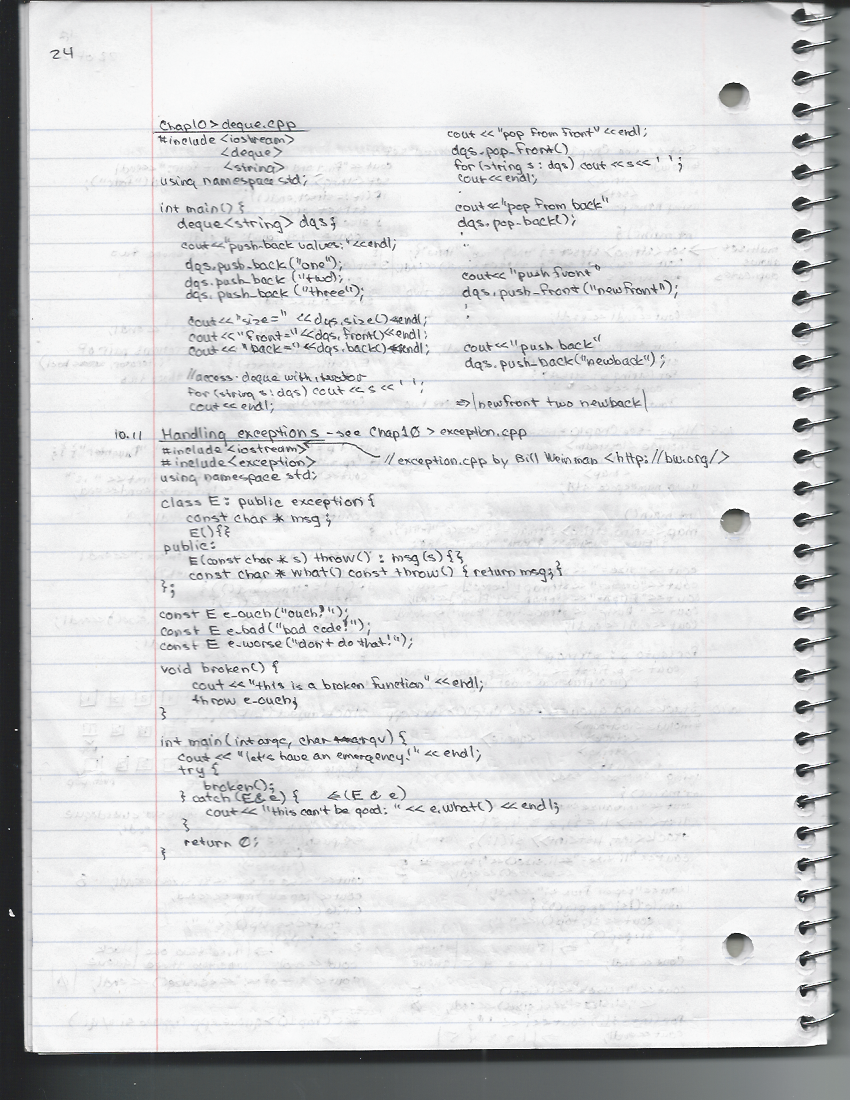 24
Chap10 > deque.cpp
#include <iostream>
<deque>
<string>
using namespace std;
int main() {
deque<string> dqs;
cout<<"push-back values:"<<endl;
dqs.push-back("one");
dqs.push-back ("two");
dqs.push-back ("three");
cout<<"size=" <<dqs.size()<<endl;
cout<<"front="<<dqs.front()<<endl;
cout<< "back="<<dqs.back()<<endl;
//access deque with iterator
for (string s : dqs) cout << s << ' ';
cout << endl;
cout << "pop from front" <<endl;
dqs.pop-front()
for (string s : dqs) cout << s << ' ';
cout<<endl;
cout<<"pop from back"
dqs.pop-back();
cout<< "push front"
dqs.push-front("newfront");
cout<<"push back"
dqs.push-back("newback");
=> |newfront two newback|
10.11 Handling exceptions - see Chap10 > exception.cpp
#include <iostream>
#include <exception> //exception.cpp by Bill Weinman <http://bw.org/>
using namespace std;
class E : public exception {
const char * msg;
E(){}
public:
E(const char * s) throw() : msg(s){}
const char * what() const throw() { return msg; }
};
const E e-ouch("ouch!");
const E e-bad("bad code!");
const E e-worse("don't do that!");
void broken() {
cout << "this is a broken function" << endl;
throw e-ouch;
}
int main(int argc, char **argv) {
cout << "let's have an emergency!" << endl;
try {
broken();
} catch(E& e) { <(E & e)
cout << "this can't be good: " << e.what() << endl;
}
return 0;
}